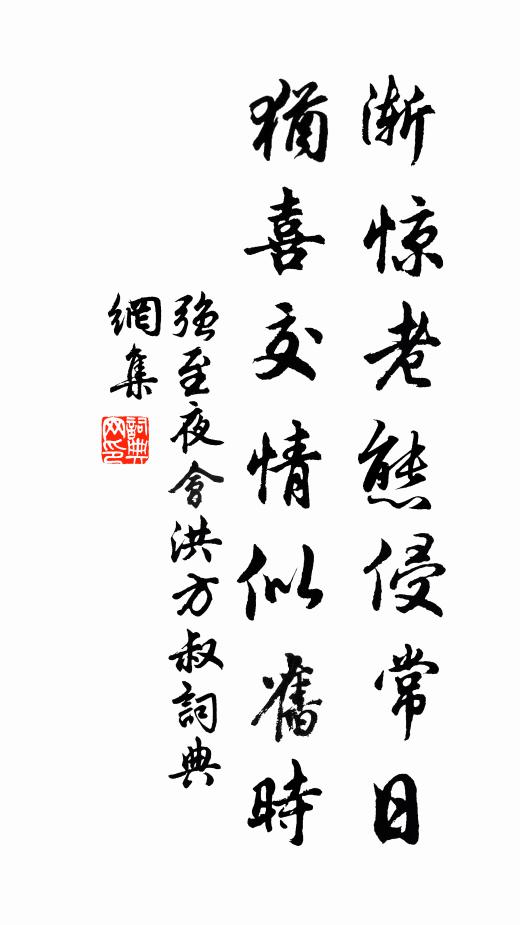 漸惊老態侵常日
猶喜交情似舊時
强至夜會洪方叔詞典
網集
詞典
网印